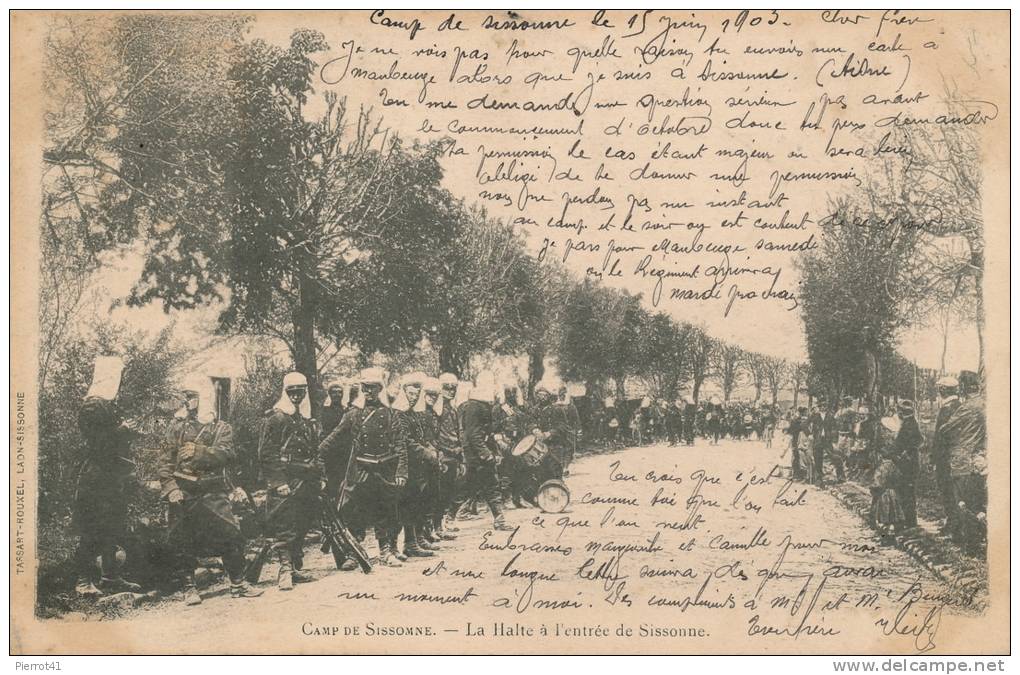 Camp de Sissonne le 15 Juin 1903. Cher frère
Je ne vois pas pour quelle raison tu envois une carte a
Maubeuge alors que je suis à Sissonne. (Aisne)
Tu me demande une question pas avant
le commancement d'Octobre donc tu peux demander
ta permission de cas étant majeur on sera bien
obligé de te donner une permission
nous ne perdon pas un instant
au camp et le soir on est content de
Je pars pour Maubeuge samedi
ou le Régiment arrivra
mardi prochain
Tu crois que c'est
comme toi que l'on fait
ce que l'on veut
Embrasses Marguerite et Camille pour moi
et une longue lettre suivra dès que j'aurai
un moment à moi. Des compliments à Mr et Me
Ton frère
TASSART-ROUXEL, LAON-SISSONNE
CAMP DE SISSOMNE. — La Halte à l'entrée de Sissonne.
Pierrot41
http://www.delcampe.net